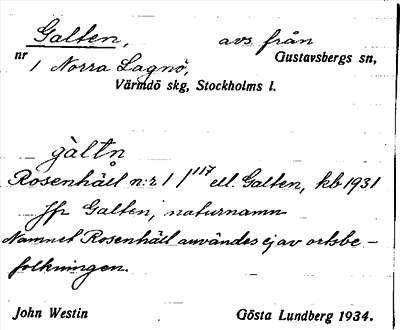 Galten, avs. från
nr 1 Norra Lagnö, Gustavsbergs sn,
Värmdö skg, Stockholms l.
gàltn̥
Rosenhäll n:r 1/117 ell. Galten, kb 1931
Jfr Galten, naturnamn
Namnet Rosenhäll användes ej av ortsbe-
folkningen.
John Westin Gösta Lundberg 1934.